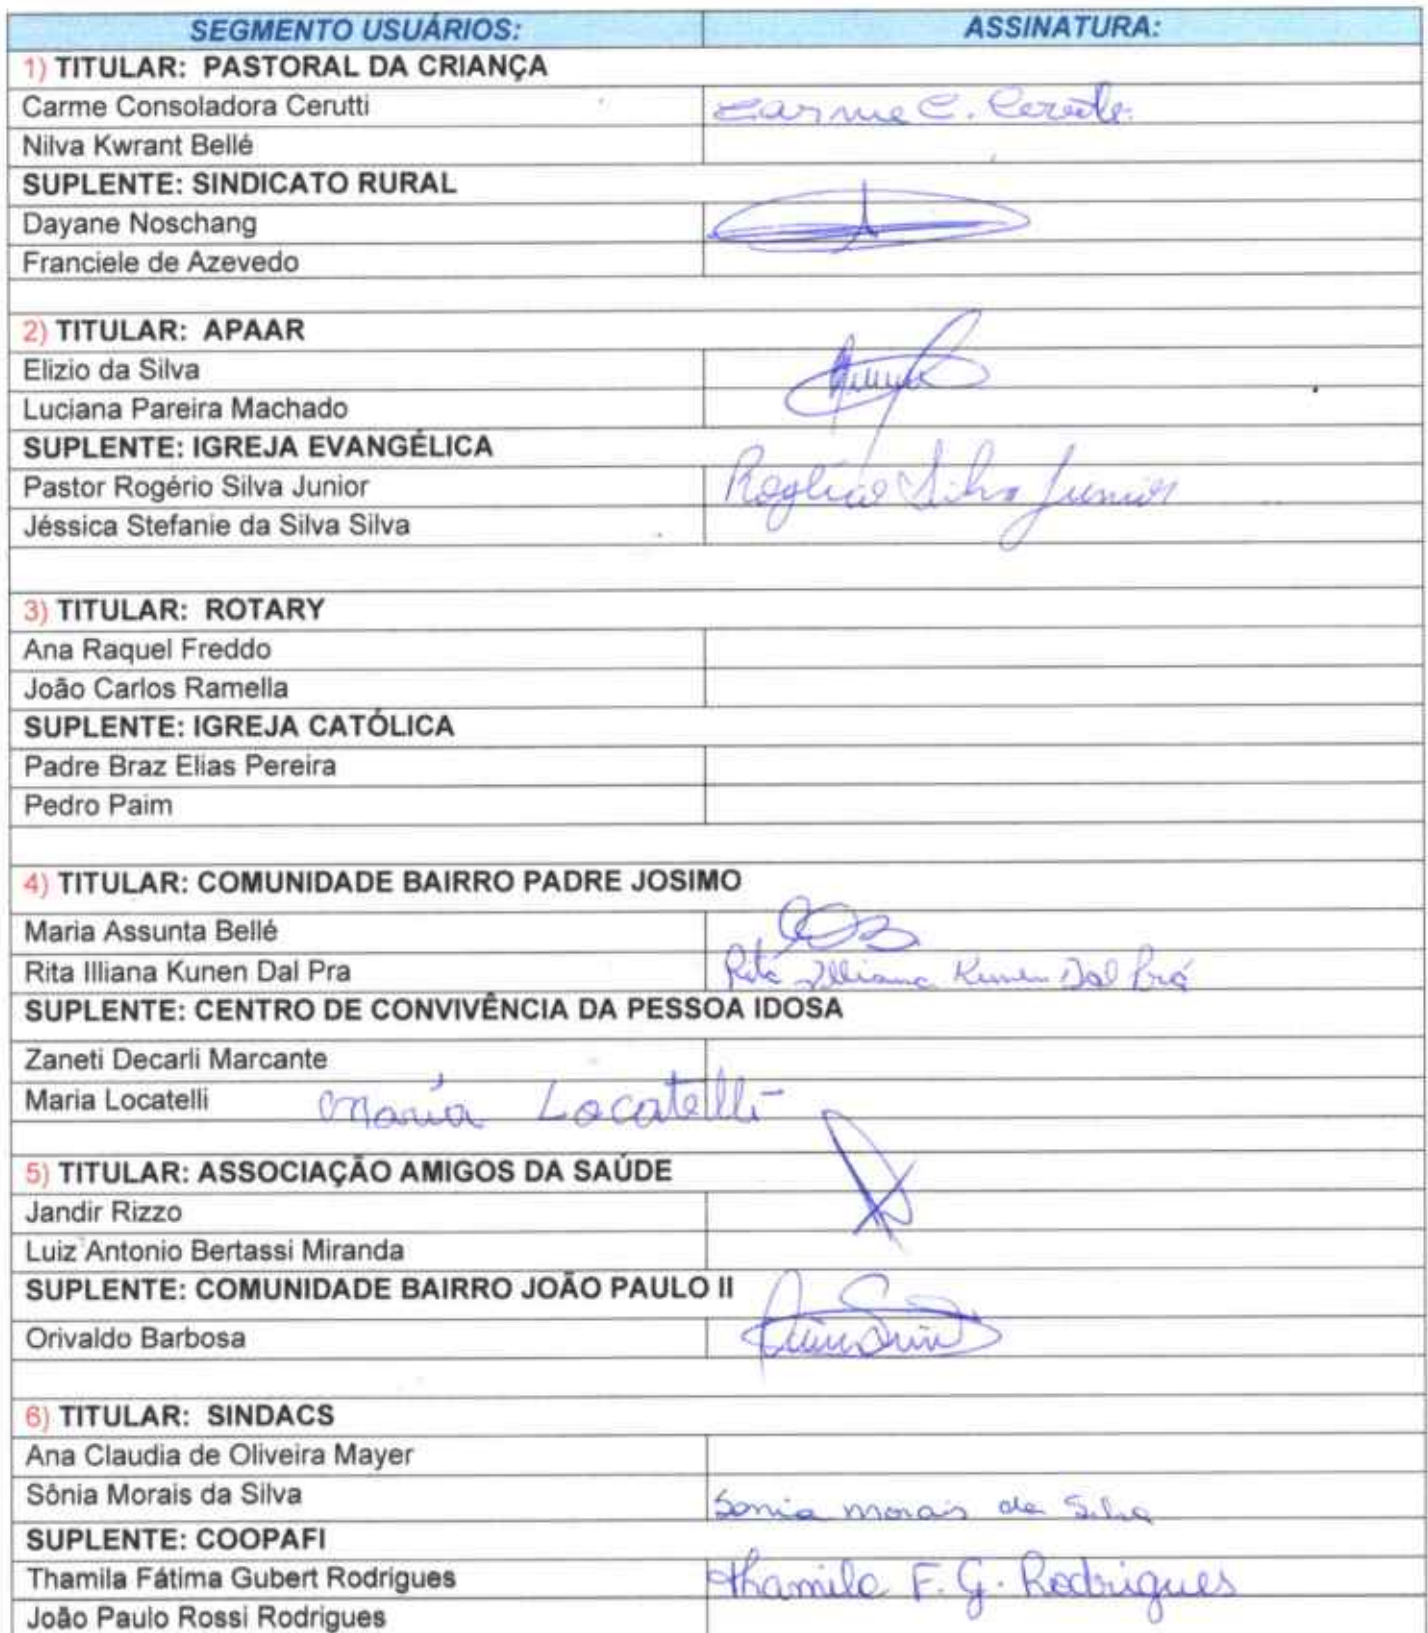 SEGMENTO USUÁRIOS: ASSINATURA:
1) TITULAR: PASTORAL DA CRIANÇA
Carme Consoladora Cerutti Carme C. Cerutti
Nilva Kwrant Bellé
SUPLENTE: SINDICATO RURAL
Dayane Noschang
Franciele de Azevedo
2) TITULAR: APAAR
Elizio da Silva
Luciana Pareira Machado
SUPLENTE: IGREJA EVANGÉLICA
Pastor Rogério Silva Junior Rogério Silva Junior
Jéssica Stefanie da Silva Silva
3) TITULAR: ROTARY
Ana Raquel Freddo
João Carlos Ramella
SUPLENTE: IGREJA CATÓLICA
Padre Braz Elias Pereira
Pedro Paim
4) TITULAR: COMUNIDADE BAIRRO PADRE JOSIMO
Maria Assunta Bellé
Rita Illiana Kunen Dal Pra Rita Illiana Kunen Dal Prá
SUPLENTE: CENTRO DE CONVIVÊNCIA DA PESSOA IDOSA
Zaneti Decarli Marcante
Maria Locatelli Maria Locatelli
5) TITULAR: ASSOCIAÇÃO AMIGOS DA SAÚDE
Jandir Rizzo
Luiz Antonio Bertassi Miranda
SUPLENTE: COMUNIDADE BAIRRO JOÃO PAULO II
Orivaldo Barbosa
6) TITULAR: SINDACS
Ana Claudia de Oliveira Mayer
Sônia Morais da Silva Sonia Morais da Silva
SUPLENTE: COOPAFI
Thamila Fátima Gubert Rodrigues Thamila F. G. Rodrigues
João Paulo Rossi Rodrigues